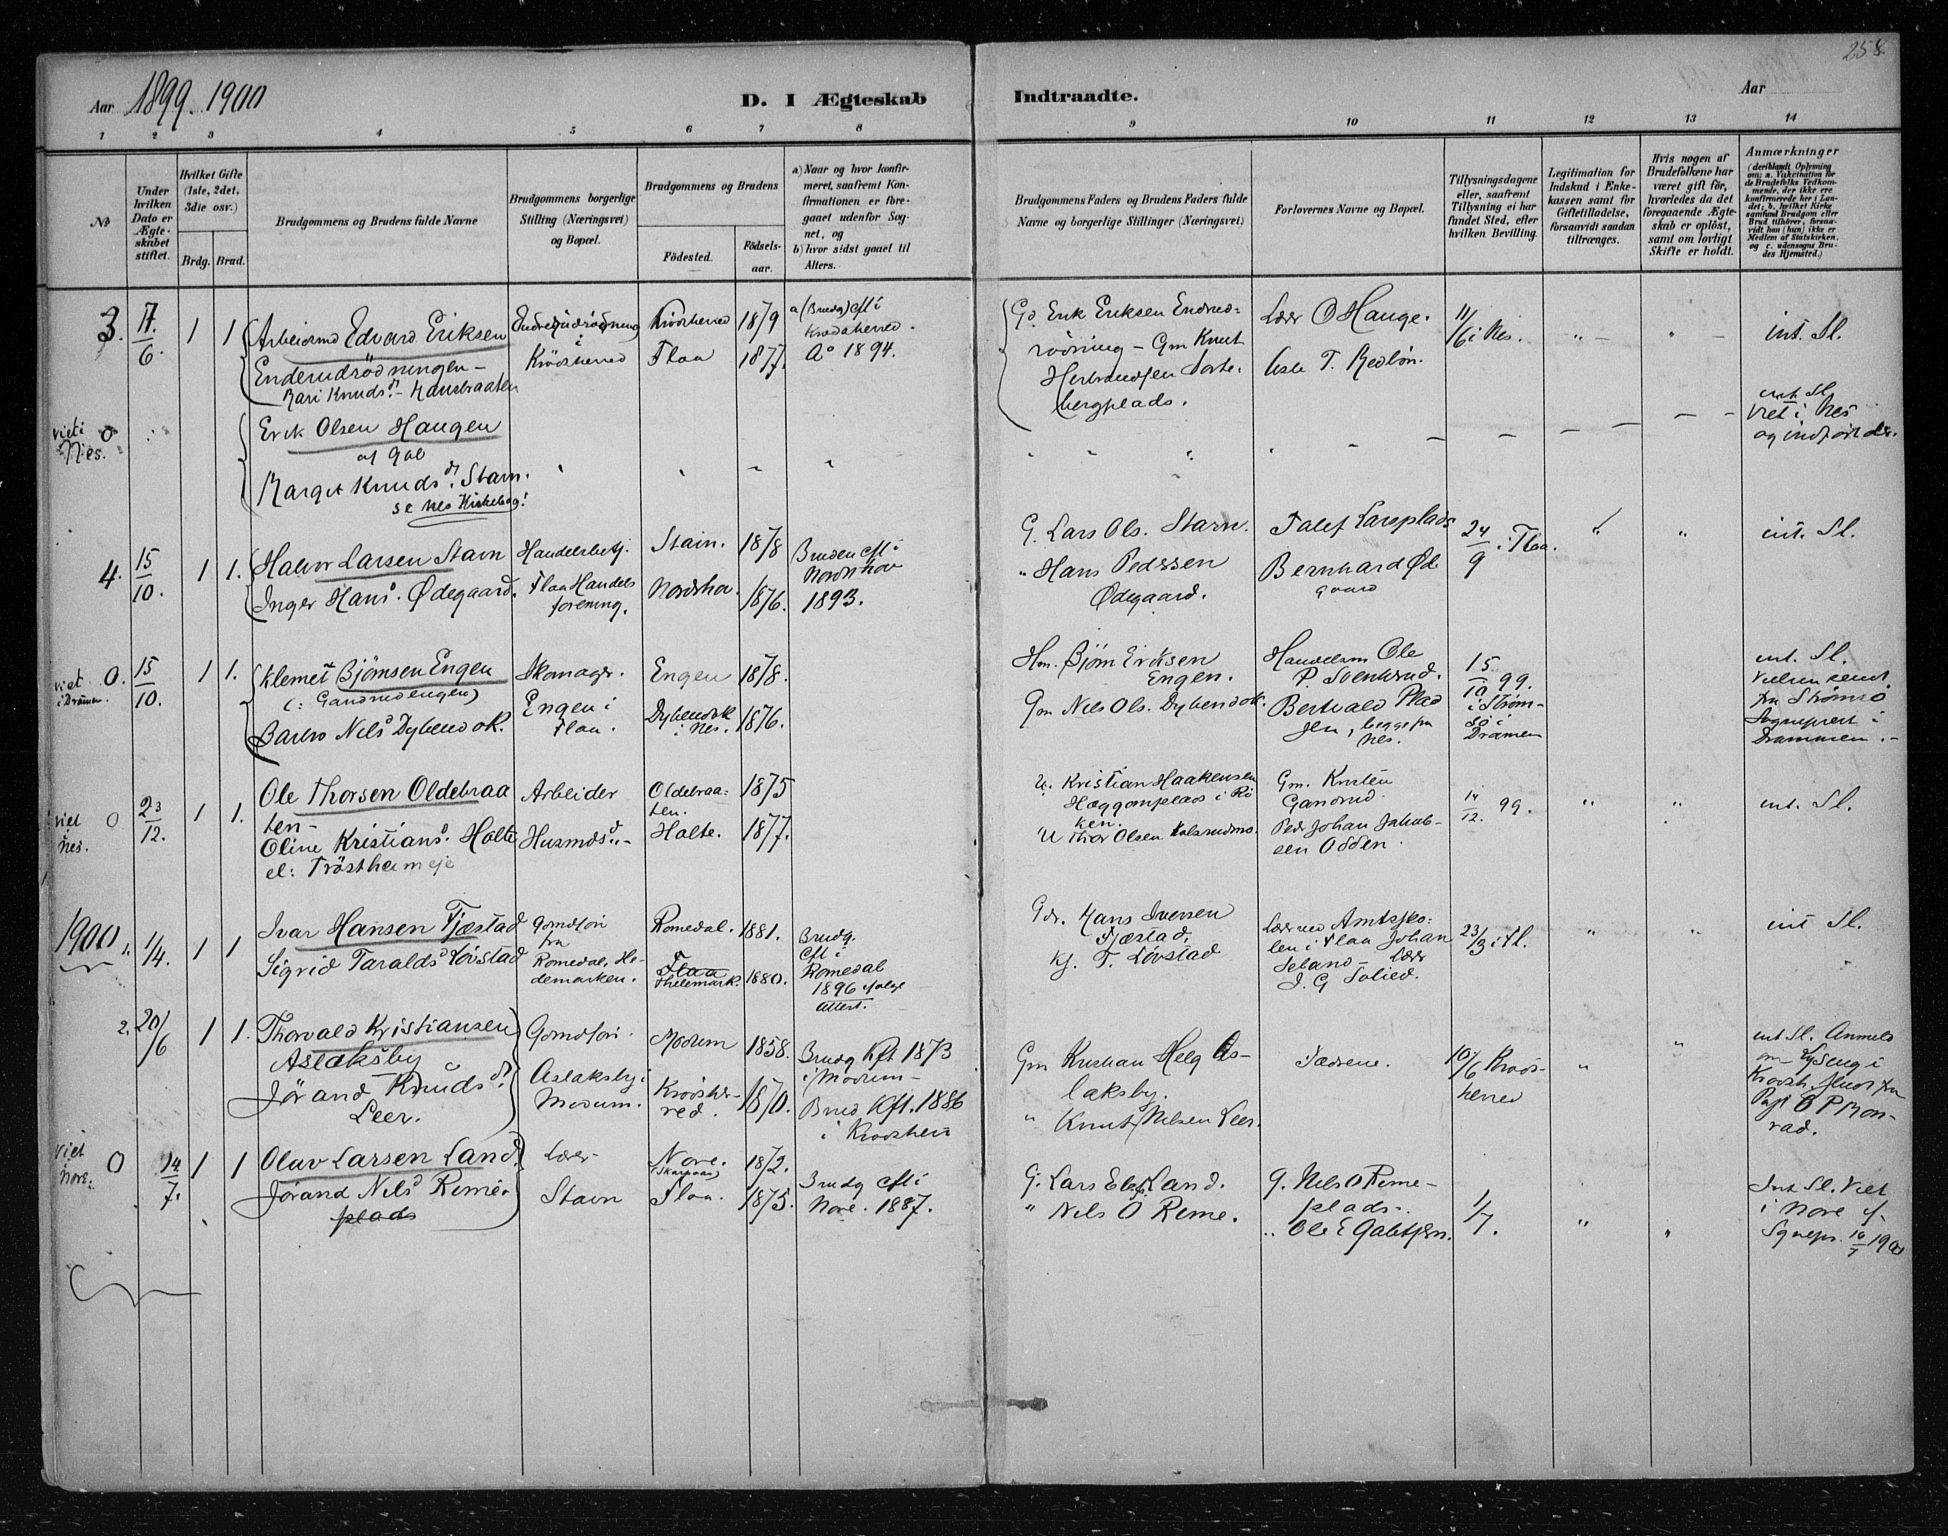 258
Aar 1899. 1900
D. I Ægteskab Indtraadte.
Aar
1 2 3 4 5 6 7 8 9 10 11 12 13 14
No
Under hvilken Dato er Ægteskabet stiftet.
Hvilket Gifte (1ste, 2det, 3die osv.)
Brdg. Brud.
Brudgommens og Brudens fulde Navne
Brudgommens borgerlige Stilling (Næringsvei) og Bopæl.
Brudgommens og Brudens
Fødested. Fødselsaar.
a) Naar og hvor konfirmeret, saafremt Konfirmationen er foregaaet udenfor Sognet, og
b) hvor sidst gaaet til Alters.
Brudgommens Faders og Brudens Faders fulde Navne og borgerlige Stillinger (Næringsvei)
Forlovernes Navne og Bopæl.
Tillysningsdagene eller, saafremt Tillysning ei har fundet Sted, efter hvilken Bevilling.
Legitimation for Indskud i Enkekassen samt for Giftetilladelse, forsaavidt saadan tiltrænges.
Hvis nogen af Brudefolkene har været gift før, hvorledes da det foregaaende Ægteskab er opløst, samt om lovligt Skifte er holdt.
Anmærkninger
(deriblandt Oplysning om: a. Vakcination for de Brudefolks Vedkommende, der ikke ere konfirmerede her i Landet; b. hvilket Kirkesamfund Brudgom eller Brud tilhører, forsaavidt han (hun) ikke er Medlem af Statskirken, og c. udensogns Brudes Hjemsted.)
3. 17/6. 1 1
Arbeidsmd Edvard Eriksen
Enderudrödningen –
Kari Knudsd. – Hansbraaten
i
Krödsherred
Krödsherred 1879
Flaa 1877.
a (Brudg) cft i
Krødsherred.
Ao 1894.
Gd. Erik Eriksen Enderudrödning – Gm Knut
Herbrandsen Sortebergplads.
Lærer O Hauge.
Asle T. Redløn.
11/6 i Nes.
int. Sl.
viet i
Nes. 0
Erik Olsen Haugen
af Gol
Margit Knudsd. Stavn.
se Nes Kirkebog!
int Sl
Viet i Nes
og indført der.
4. 15/10. 1 1.
Halvor Larsen Stavn
Inger Hans. Ødegaard.
Handelsbetj.
Flaa Handelsforening.
Stavn. 1878
Nordrhov. 1876.
Bruden cft i
Nordrhov
1893.
G. Lars Ols. Stavn.
" Hans Pedersen
Ødegaard.
Tolef Larsplads
Bernhard Ødegaard
24/9 i Flaa.
int. Sl.
viet
i Dramen. 0. 15/10. 1 1.
Klemet Bjørnsen Engen
(: Gandrudengen)
Barbro Nelsd Dybendok.
Skomager.
Engen i
Flaa.
Engen 1878.
Dybendok
i Nes. 1876.
Hm. Bjørn Eriksen
Engen.
Gm Nels Ols. Dybendok.
Handelsm Ole
P. Svenkerud.
Bertvald Pladsen, begge fra
Nes.
15/10 99.
i Strømsö i
Dramen
int. Sl.
Vielsen sendt
fra Strømsö
Sogneprest i
Drammen. –
viet
Nes. 0 23/12. 1 1.
Ole Thorsen Oldebraaten –
Oline Kristiansd. Holte
el: Tröstheimeje
Arbeider
Husmdsd. –
Oldebraaten. 1875
Holte. 1877.
U. Kristian Haakensen
Hæggomplads i Röken.
U Thor Olsen
Gm. Knsten
Gandrud.
Peder Johan Jakobsen Odden.
14/12. 99.
int. Sl.
1900 1. 1/4. 1 1
Ivar Hansen Fjæstad
Sigrid Taralds Løvstad
Gmdfori
fra
Romedal, Hedemarken.
Romedal. 1881.
Flaa
Thelemark. 1880.
Brudg.
Cft i
Romedal
1896 ifølge
Attest.
Gdr. Hans Iversen
Fjæstad.
Kj. T. Løvstad
Lærer ved Amtsskolen i Flaa Johan
Seland – Lærer
J. G Solied.
23/3 i Fl.
int Sl.
2. 20/6 1 1.
Thorvald Kristiansen
Aslaksby
Jørand Knudsd.
Leer.
Gmdfori.
Aslaksby i
Modum.
Modum 1858.
Krödsherred. 1870.
Brudg Kft 1873
i Modum –
Brud Kft. 1886
i Krödsherr
Gm Kristian Helg Aslaksby.
" Knut Nilsen Leer.
Fædrene.
10/6 Krödsherred
int Sl. Anmeld
om Lysning i
Krödsh.
viet
Nore. 0 14/7. 1 1
Olav Larsen Land.
Jørand Nelsd Reme.
plads
Lærer
Stavn
Nore. 1872.
Flaa. 1875.
Brudg cft i
Nore. 1887.
G. Lars Land.
" Nels O Reme.
G. Nels O Remeplads.
" Ole E Galtjern.
1/7.
Int Sl. Viet
i Nore
Sognepr. 16/7 1900